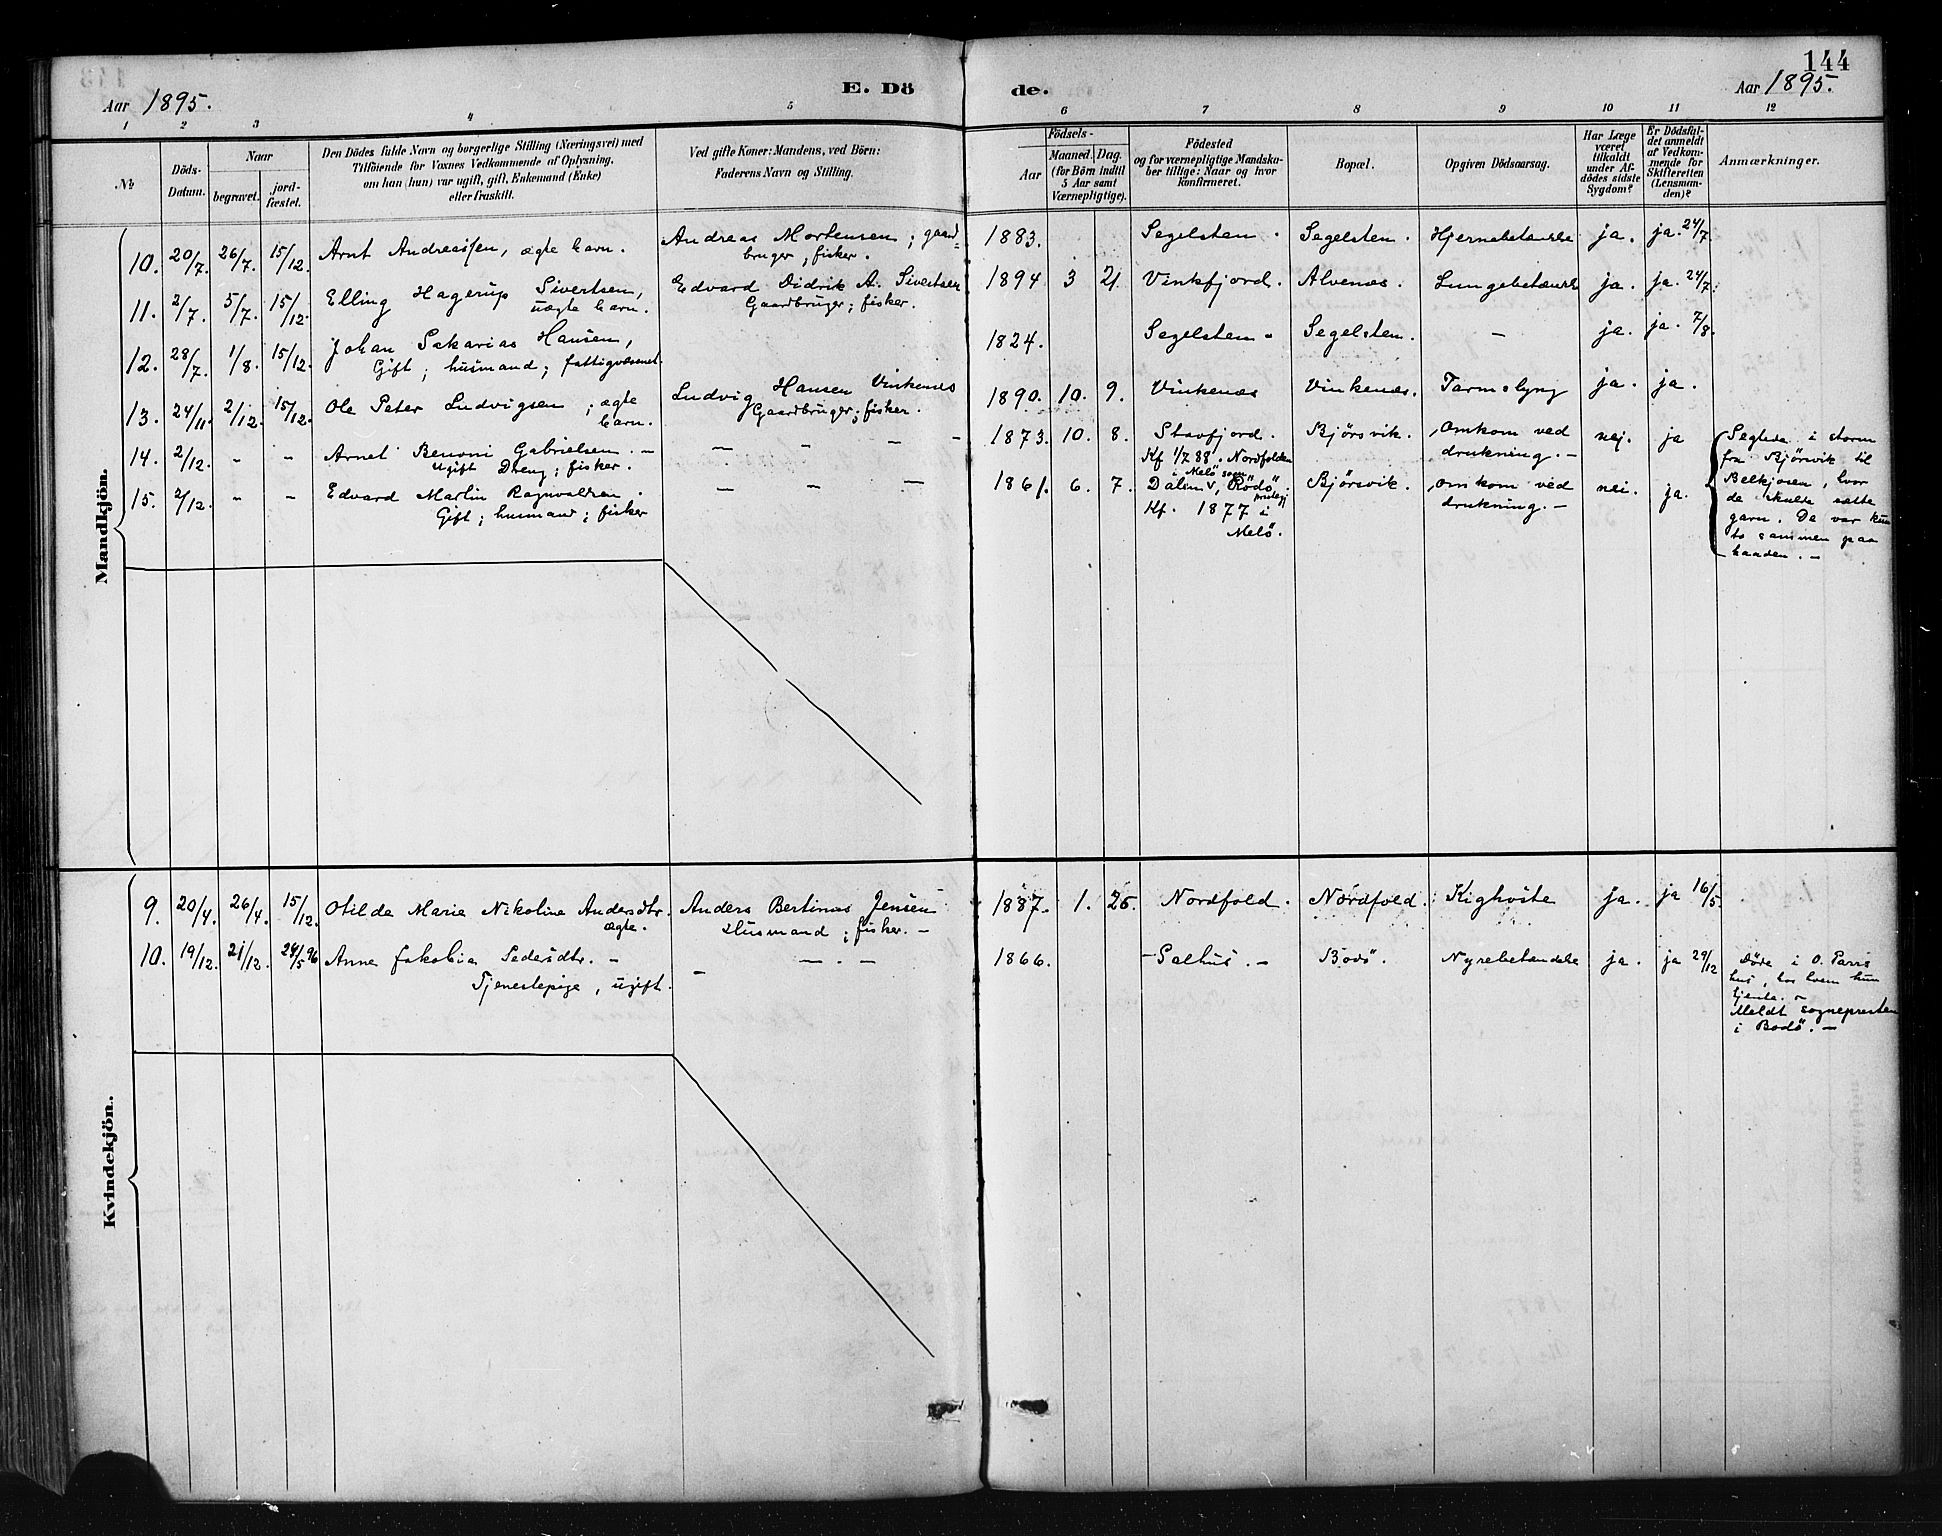 144
Aar 1895.
E. Dö
de.
Aar 1895.
1 2 3 4 5 6 7 8 9 10 11 12
№
Döds-
Datum.
Naar
begravet.
jord-
fæstet.
Den Dödes fulde Navn og borgerlige Stilling (Næringsvei) med
Tilföiende for Voxnes Vedkommende af Oplysning,
om han (hun) var ugift, gift, Enkemand (Enke)
eller fraskilt.
Ved gifte Koner: Mandens, ved Börn:
Faderens Navn og Stilling.
Födsels-
Aar
Maaned. Dag.
(for Börn indtil
5 Aar samt
Værnepligtige).
Födested
og for værnepligtige Mandska-
ber tillige: Naar og hvor
konfirmeret.
Bopæl.
Opgiven Dödsaarsag.
Har Læge
været
tilkaldt
under Af-
dödes sidste
Sygdom?
Er Dödsfal-
det anmeldt
af Vedkom-
mende for
Skifteretten
(Lensman-
den)?
Anmærkninger.
Mandkjön.
10. 20/7. 26/7. 15/12. Arnt Andreassen, ægte barn. Andreas Mortensen; gaard-
bruger; fisker.
1883. Segelsten. Segelsten. Hjernebetændelse ja. ja. 24/7
11. 2/7. 5/7. 15/12. Elling Hagerup Sivertsen,
uægte barn.
Edvard Didrik A. Sivertsen
Gaardbruger; fisker.
1894 3 21 Vinkfjord. Alvenæs. Lungebetændelse ja. ja. 24/7.
12. 28/7. 1/8. 15/12. Johan Sakarias Hansen,
Gift; husmand; fattigvæsnet.
1824. Segelsten. Segelsten. — ja. ja. 7/8.
13. 24/11. 2/12. 15/12. Ole Peter Ludvigsen; ægte
barn.
Ludvig Hansen Vinkenes
Gaardbruger; fisker.
1890. 10. 9. Vinkenæs Vinkenæs. Tarmslyng ja. ja.
14. 2/12. - - Arnet Benoni Gabrielsen. —
Ugift Dreng; fisker.
— — — —
1873. 10. 8. Stavfjord.
Kf 1/7 88. Nordfolden
Bjørsvik. Omkom ved
drukning. —
nej. ja
15. 2/12. - - Edvard Martin Ragnvaldsen.
Gift; husmand; fisker
— — —
1861. 6. 7. i Melö sogn
Dalen v, Rödö
prstgj
Kf. 1877 i
Melö.
Bjørsvik. Omkom ved
drukning. —
nei. ja.
Seglede i storm
fra Bjørsvik til
Belkjosen, hvor
de skulde sætte
garn. De var kun
to sammen paa
baaden. —
Kvindekjön.
9. 20/4. 26/4. 15/12. Otilde Marie Nikoline Andersdtr.
ægte.
Anders Bertinus Jensen
Husmand; fisker. —
1887. 1. 25. Nordfold. Nordfold. Kighoste ja. ja 16/5.
10. 19/12. 21/12. 24/5 96 Anne Jakobia Pedersdtr. —
Tjenestepige, ugift.
— — - —
1866. - Salhus. — Bodö. Nyrebetændelse ja. ja 29/12
Døde i O. Parris
hus, hos hvem hun
tjente. —
Meldt sognepresten
i Bodö. —